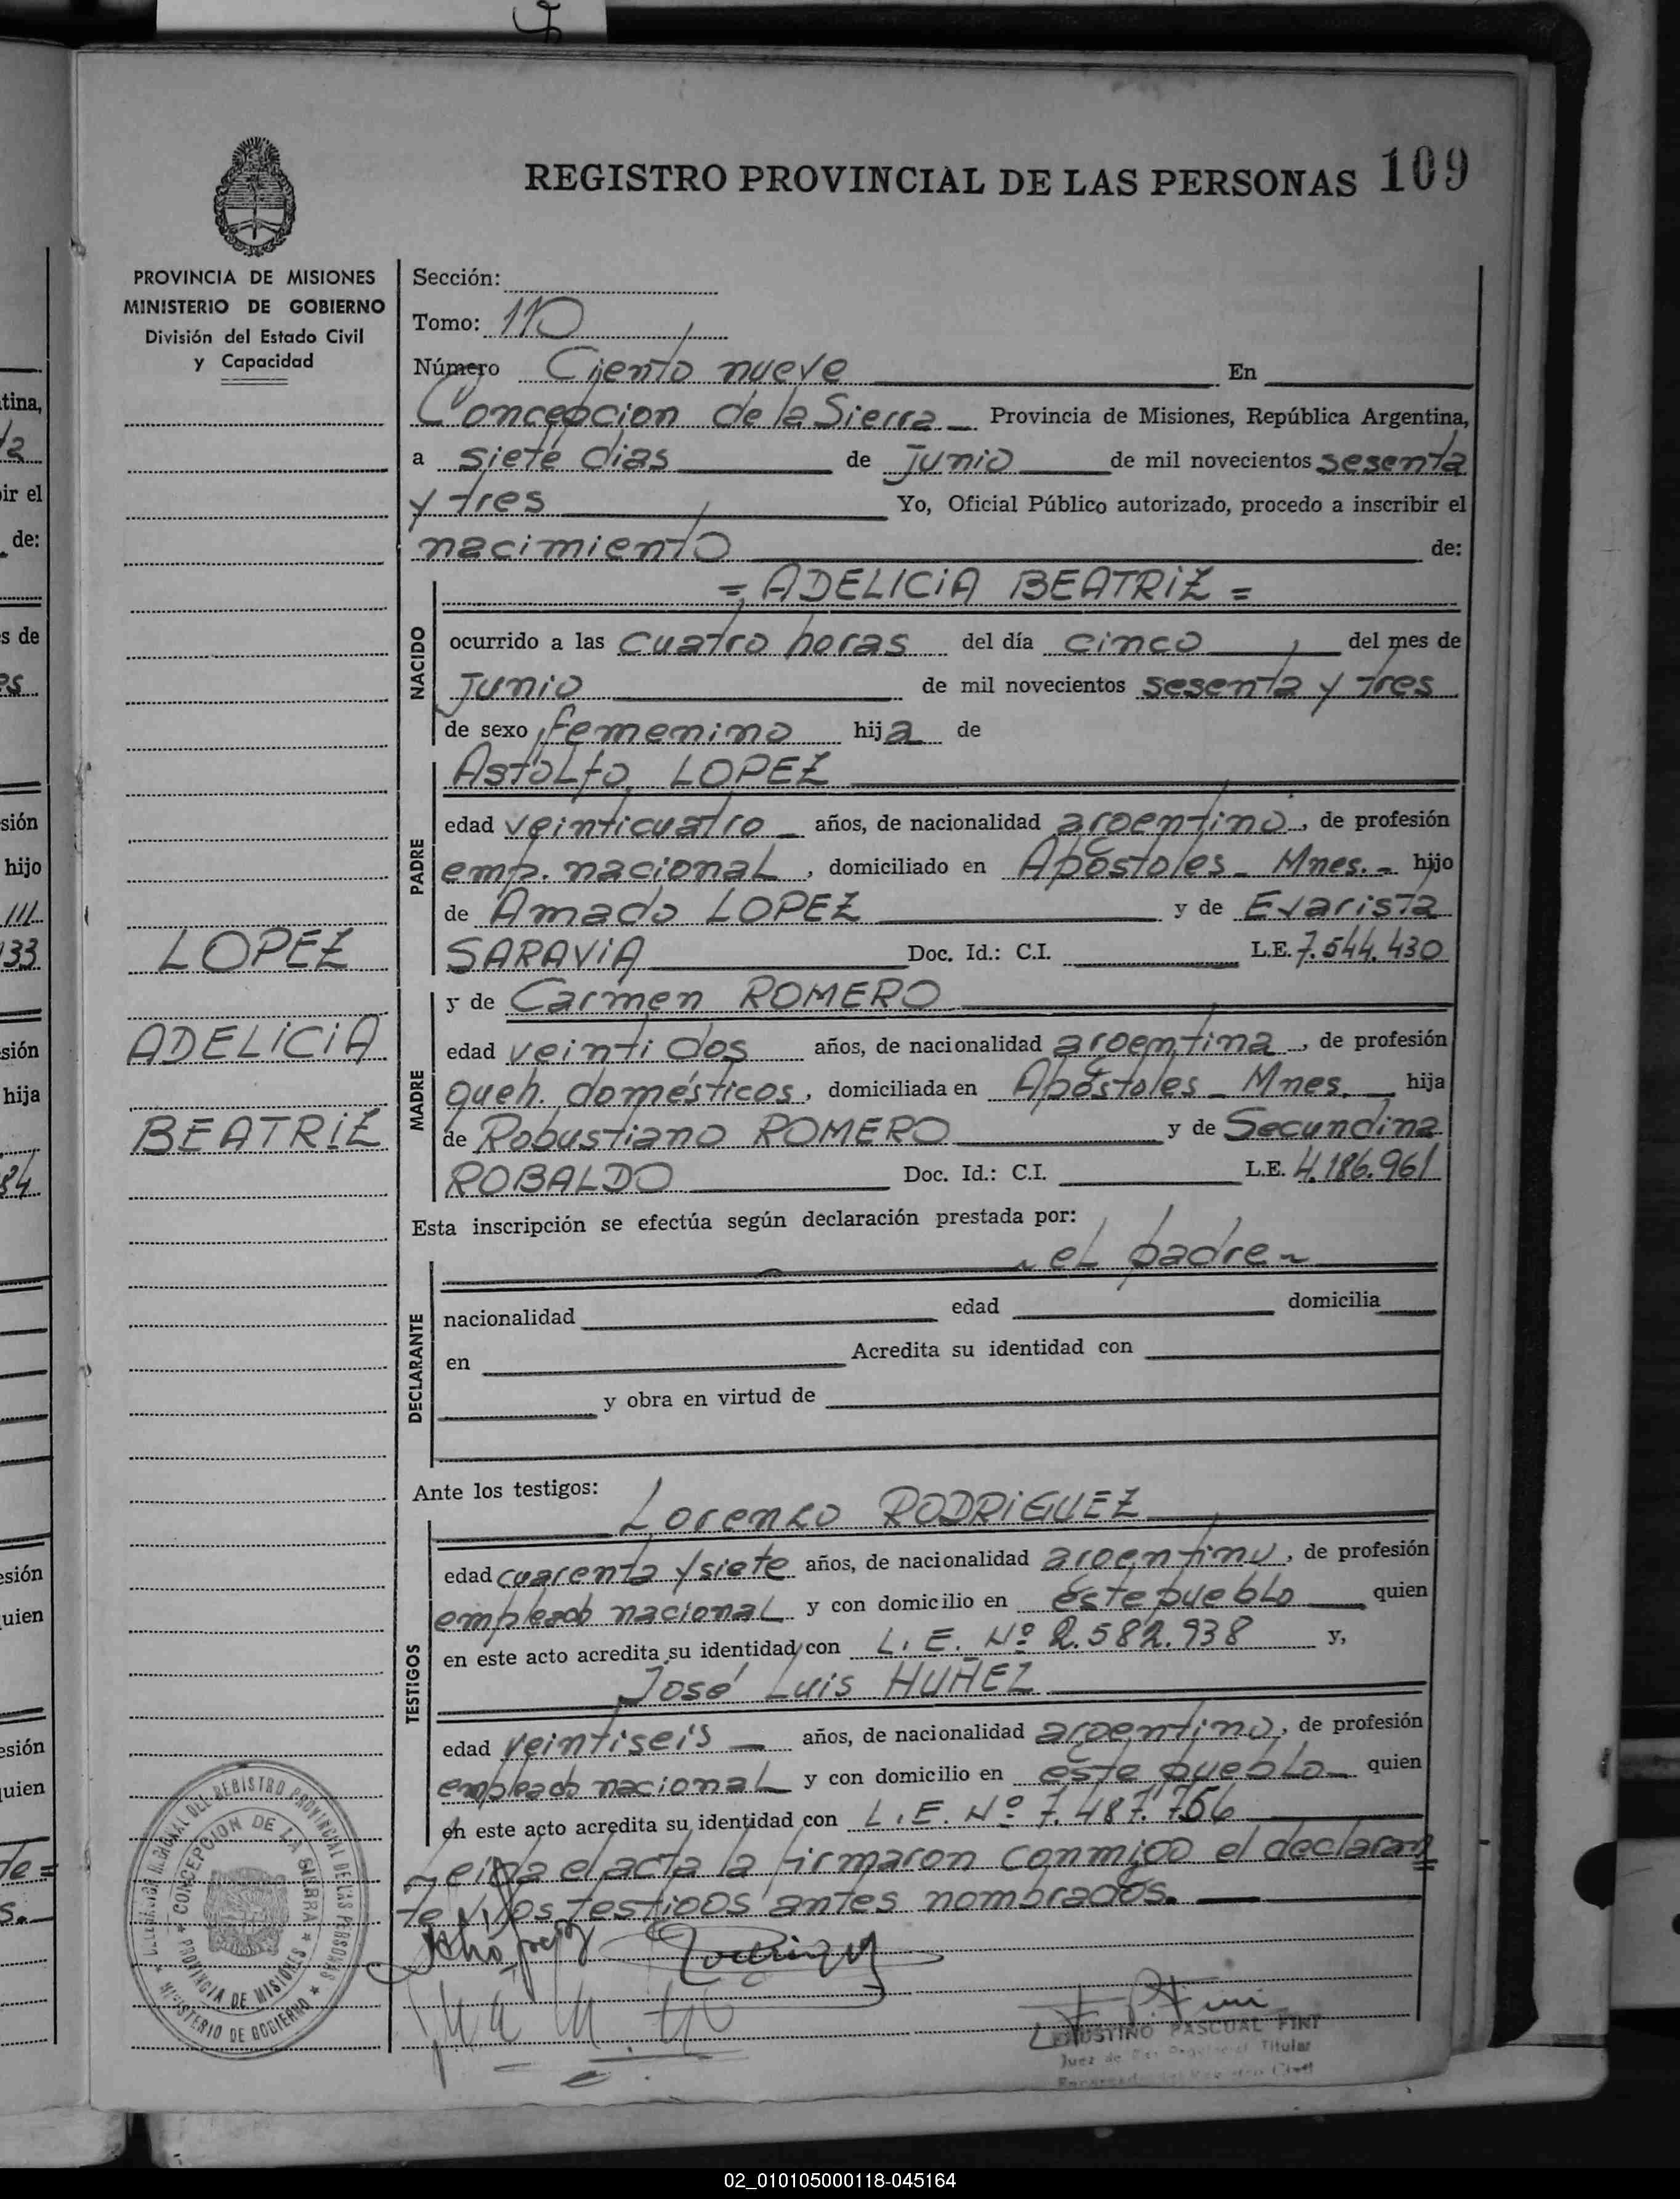 REGISTRO PROVINCIAL DE LAS PERSONAS 109
PROVINCIA DE MISIONES
MINISTERIO DE GOBIERNO
División del Estado Civil
y Capacidad
LOPEZ
ADELICIA
BEATRIZ
Sección:
Tomo: 110
Número Ciento nueve En
Concepcion de la Sierra Provincia de Misiones, República Argentina,
a siete dias de Junio de mil novecientos sesenta
y tres Yo, Oficial Público autorizado, procedo a inscribir el
nacimiento de:
= ADELICIA BEATRIZ =
NACIDO
ocurrido a las cuatro horas del día cinco del mes de
Junio de mil novecientos sesenta y tres
de sexo femenino hija de
Astolfo LOPEZ
PADRE
edad veinticuatro años, de nacionalidad argentino, de profesión
emp. nacional, domiciliado en Apóstoles - Mnes. - hijo
de Amado LOPEZ y de Evarista
SARAVIA Doc. Id.: C.I. L.E. 7.544.430
y de Carmen ROMERO
MADRE
edad veinti dos años, de nacionalidad argentina, de profesión
queh. domésticos, domiciliada en Apóstoles - Mnes. hija
de Robustiano ROMERO y de Secundina
ROBALDO Doc. Id.: C.I. L.E. 4.186.961
Esta inscripción se efectúa según declaración prestada por:
el padre
DECLARANTE
nacionalidad edad domicilia
en Acredita su identidad con
y obra en virtud de
Ante los testigos:
Lorenzo RODRIGUEZ
TESTIGOS
edad cuarenta y siete años, de nacionalidad argentino, de profesión
empleado nacional y con domicilio en este pueblo quien
en este acto acredita su identidad con L. E. Nº 2.582.938 y,
José Luis NUÑEZ
edad veintiseis años, de nacionalidad argentino, de profesión
empleado nacional y con domicilio en este pueblo quien
en este acto acredita su identidad con L. E. Nº 7.487.756
Leida el acta la firmaron conmigo el declaran=
te y los testigos antes nombrados.
FAUSTINO PASCUAL FINI
Juez de Titular
DELEGACION DEL REGISTRO PROVINCIAL DE LAS PERSONAS
MINISTERIO DE GOBIERNO
CONCEPCION DE LA SIERRA
PROVINCIA DE MISIONES
02_010105000118-045164